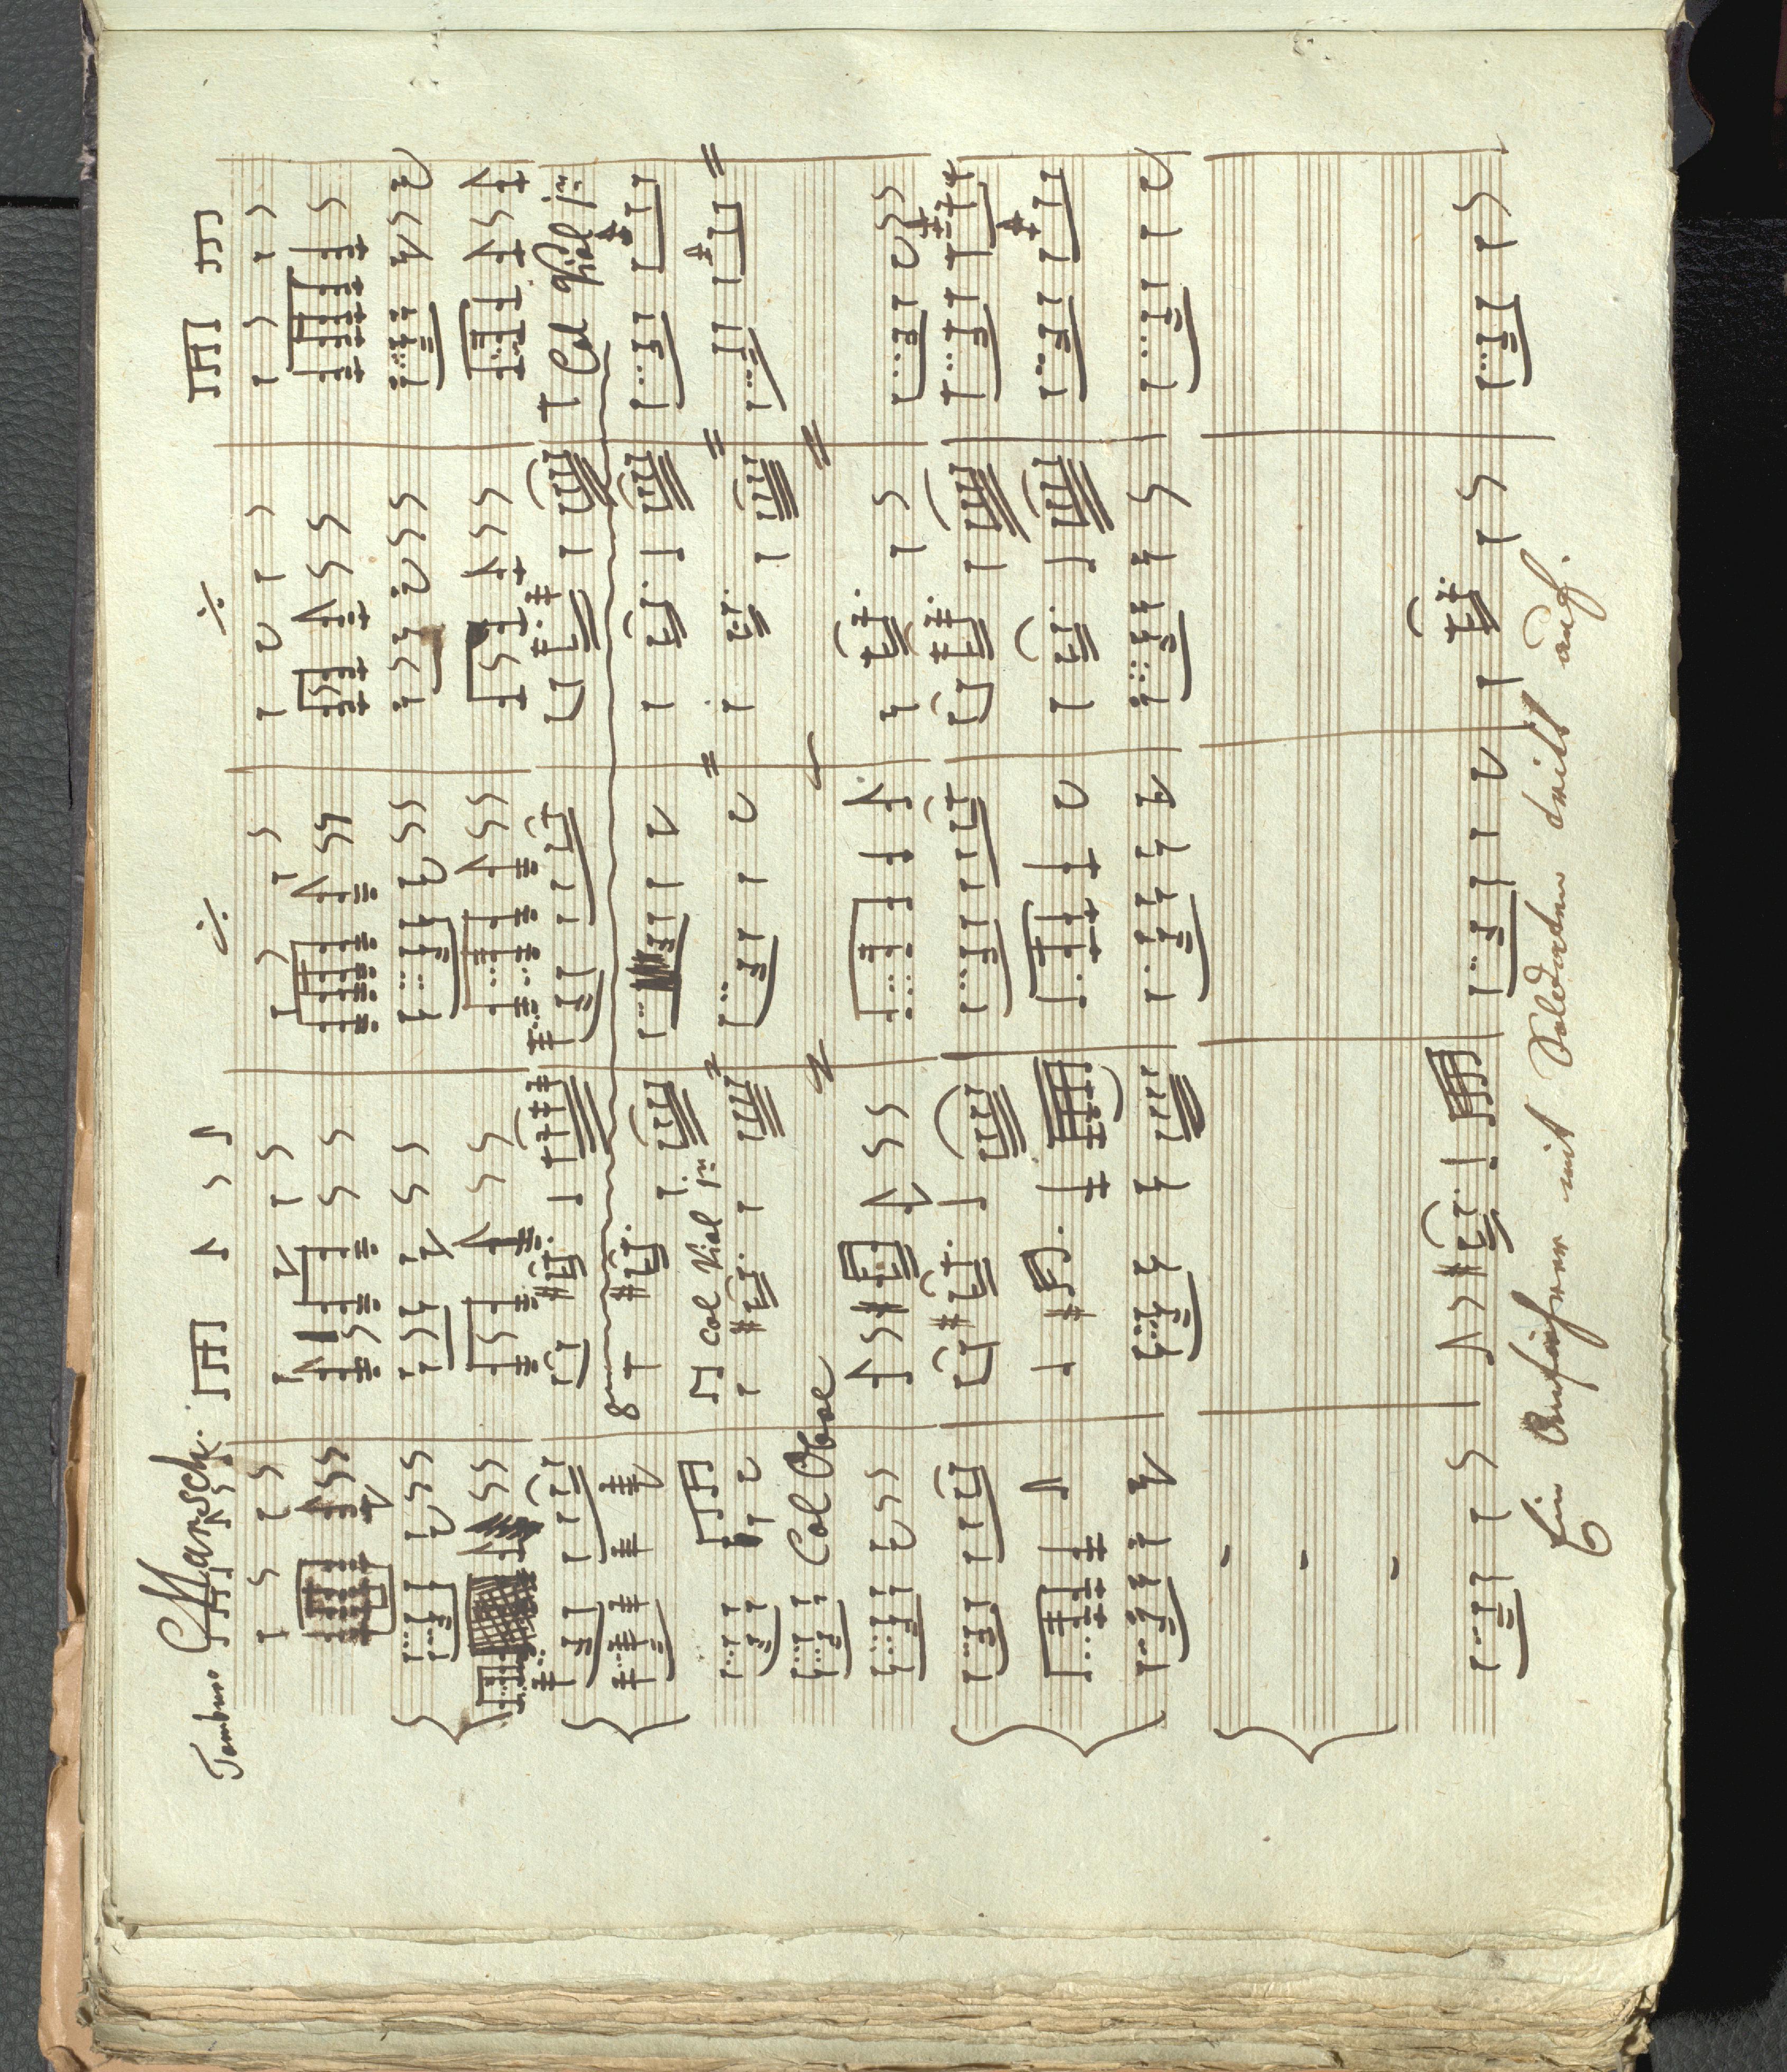 Marsch.
Tamburo
Col Viol 1mo
8
col Viol 1mo
Col Oboe
Ein Anführer mit Soldaten tritt auf.